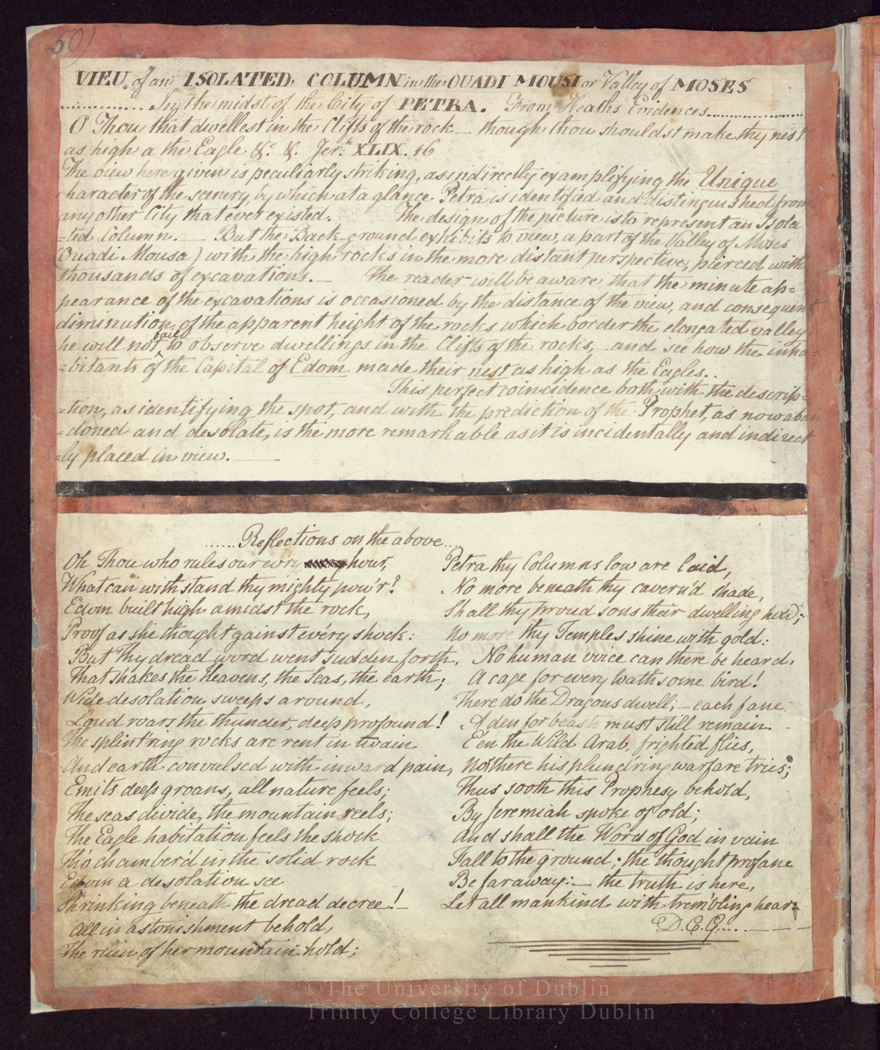 50)
VIEU of an ISOLATED COLUMN in the OUADI MOUSI or Valley of MOSES
In the midst of the City of PETRA. From Keath's Evidences
O Thou that dwellest in the Clifts of the rock — though thou shouldst make thy nest
as high a the Eagle &c. &. Jerh XLIX. 16
The view here given is peculiarly striking, as indirectly examplifying the Unique
character of the scenery, by which at a glance Petra is identified and distinguished from
any other City that ever existed. The design of the picture is to represent an Isola
=ted Column. — But the Back ground exhibits to view, a part of the Valley of Moses
(Ouadi Mousa) with the high rocks in the more distant perspective, pierced with
thousands of excavations. — The reader will be aware, that the minute ap=
pearance of the excavations is occasioned by the distance of the view, and consequent
diminution, of the apparent height of the rocks which border the elongated valley
he will not fail to observe dwellings in the Clifts of the rocks, — and see how the inha=
=bitants of the Capital of Edom made their nest as high as the Eagles..
This perfect coincidence both with the descrip=
=tion, as identifying the spot, and with the prediction of the Prophet, as now aban
=doned and desolate, is the more remarkable as it is incidentally and indirect
=ly placed in view. —
Reflections on the above
Oh Thou who rules our evry hour,
What can withstand thy mighty pow'r?
Edom built high amidst the rock,
Proof as she thought against ev'ry shock:
But Thy dread word went sudden forth,
That shakes the Heavens, the Seas, the earth;
Wide desolation sweeps around,
Loud roars the thunder, deep profound!
The splint'ring rocks are rent in twain
And earth convulsed with inward pain,
Emits deep groans, all nature feels;
The seas divide, the mountain reels;
The Eagle habitation feels the shock
Tho chamber'd in the solid rock
Edom a desolation see
Shrinking beneath the dread decree! —
All in astonishment behold,
The ruin of her mountain hold;
Petra thy Columns low are laid,
No more beneath thy cavern'd shade,
Shall thy proud sons their dwelling hold;
No more thy Temples shine with gold:
No human voice can there be heard,
A cage for every loathsome bird!
There do the Dragons dwell, — each fane
A den for beasts must still remain.
E'en the Wild Arab, frighted flies,
Nor there his plund'ring warfare tries;
Thus sooth this Prophesy behold,
By Jeremiah spoke of old;
And shall the Word of God in vain
Fall to the ground; the thought profane
Be far away: — the truth is here,
Let all mankind with trembling hear
D.E.G.
©The University of Dublin
Trinity College Library Dublin